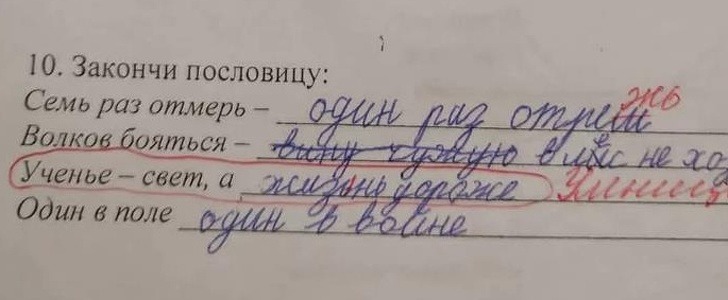 10. Закончи пословицу:
Семь раз отмерь – один раз отреж жь
Волков бояться – вину чужую в лес не хо
Ученье – свет, а жизнь дороже
Один в поле один в войне